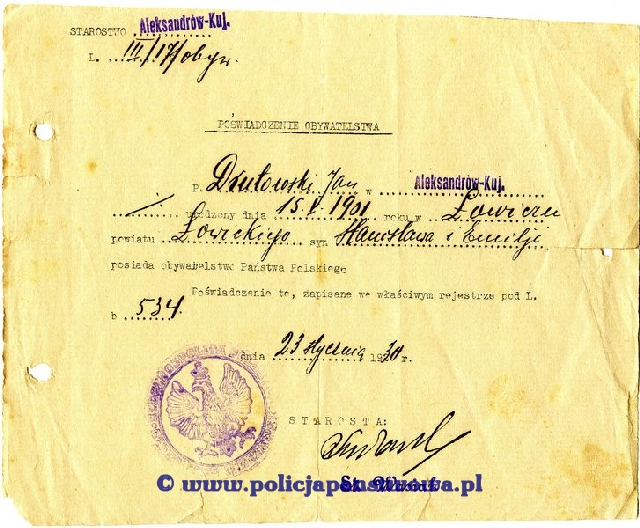 STAROSTWO Aleksandrów-Kuj.
L. III/17/obyw.
POŚWIADCZENIE OBYWATELSTWA
P. Dzułowski Jan w Aleksandrów-Kuj.
urodzony dnia 15.V.1901 roku w Łowiczu
powiatu Łowickiego syn Stanisława i Emilji
posiada obywatelstwo Państwa Polskiego
Poświadczenie to, zapisane we właściwym rejestrze pod L.
b 534.
dnia 23 stycznia 1930 r.
STAROSTA:
© www.policjapanstwowa.pl